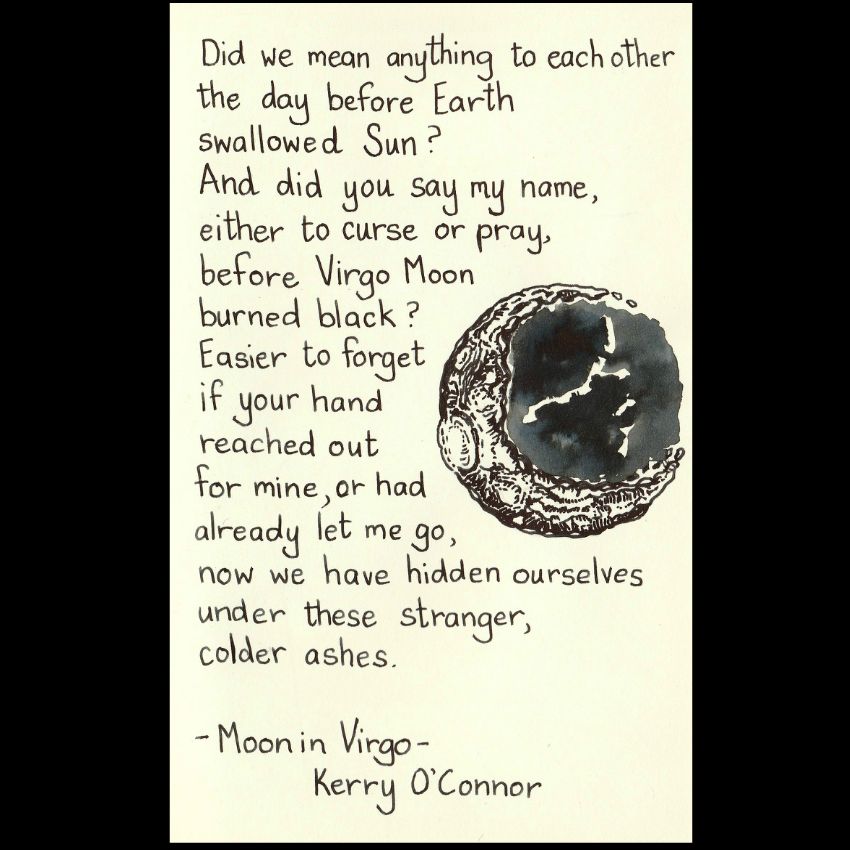 Did we mean anything to each other
the day before Earth
swallowed Sun?
And did you say my name,
either to curse or pray,
before Virgo Moon
burned black?
Easier to forget
if your hand
reached out
for mine, or had
already let me go,
now we have hidden ourselves
under these stranger,
colder ashes.
- Moon in Virgo -
Kerry O'Connor